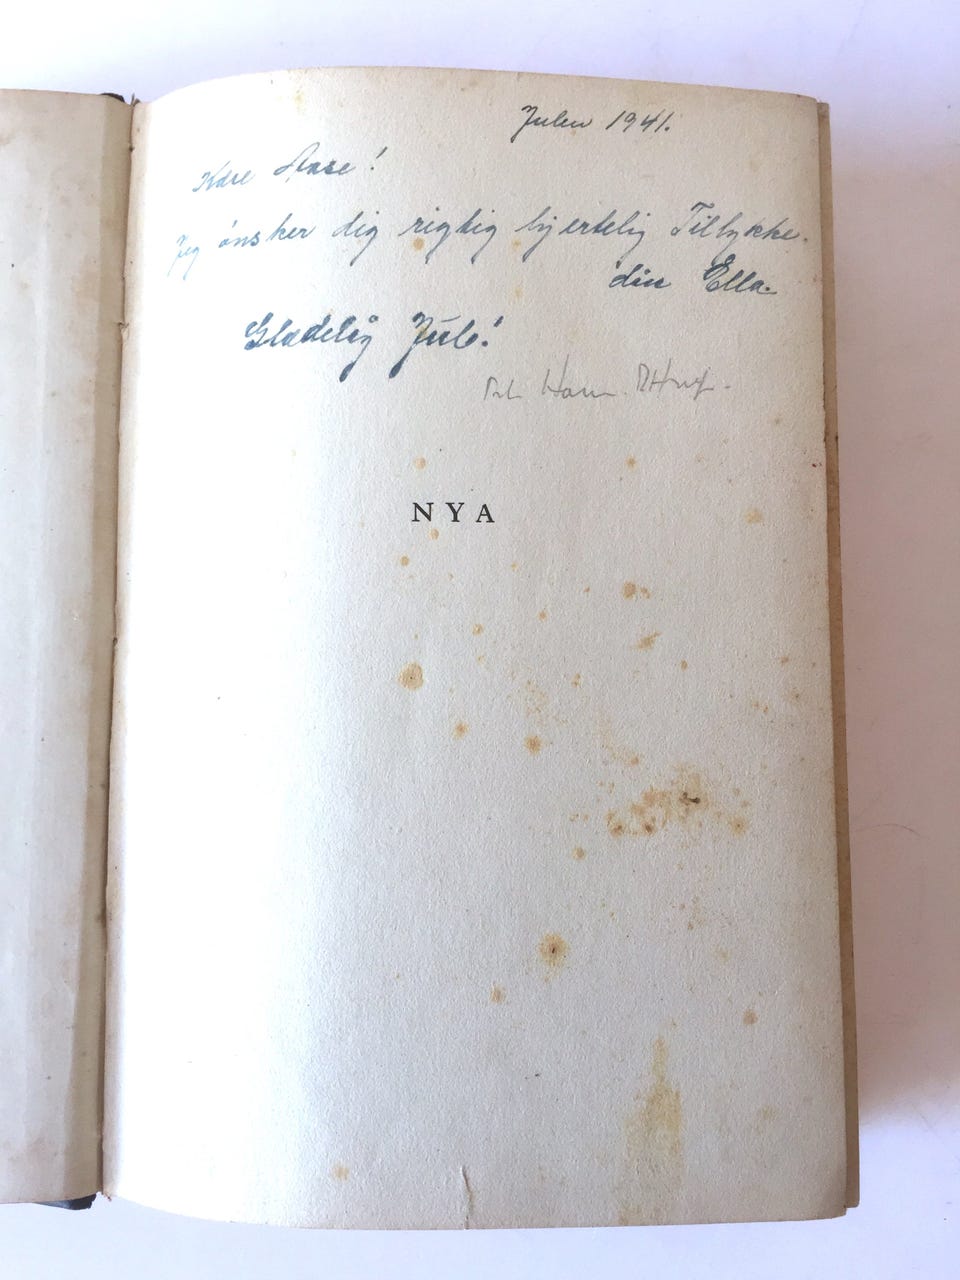 Julen 1941.
Kære Aase!
Jeg ønsker dig rigtig hjertelig Tillykke.
din Ella.
Glædelig Jul!
NYA